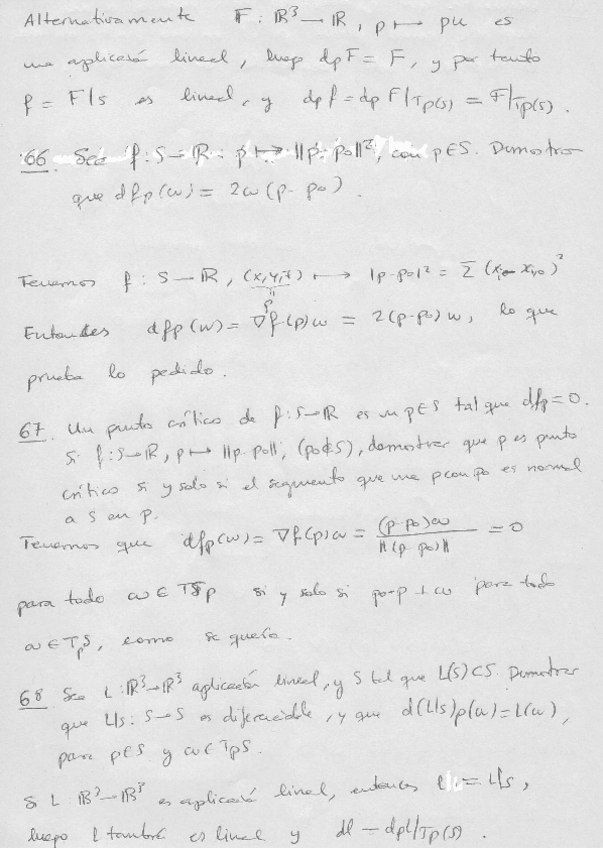 Alternativamente F : ℝ³ → ℝ, p ↦ pu es
una aplicación lineal, luego dpF = F, y por tanto
f = F|s es lineal, y dpf = dpF|Tp(S) = F|Tp(S).
66. Sea f : S → ℝ : p ↦ ||p-p₀||², con p∈S. Demostrar
que dfp(w) = 2w(p-p₀).
Tenemos f : S → ℝ, (x,y,z) ↦ |p-p₀|² = Σ(xᵢ - xᵢ,₀)²
p
Entonces dfp(w) = ∇f(p)w = 2(p-p₀)w, lo que
prueba lo pedido.
67. Un punto crítico de f : S → ℝ es un p∈S tal que dfp = 0.
Si f : S → ℝ, p ↦ ||p-p₀||, (p₀∉S), demostrar que p es punto
crítico si y solo si el segmento que une p con p₀ es normal
a S en p.
Tenemos que dfp(w) = ∇f(p)w = (p-p₀)w / ||(p-p₀)|| = 0
para todo w ∈ TSp si y solo si p₀-p ⊥ w para todo
w ∈ TpS, como se quería.
68 Sea L : ℝ³→ℝ³ aplicación lineal, y S tal que L(S)⊂S. Demostrar
que L|s : S→S es diferenciable, y que d(L|s)p(w) = L(w),
para p∈S y w∈TpS.
Si L : ℝ³→ℝ³ es aplicación lineal, entonces l = L|s,
luego l también es lineal y dl = dpL|Tp(S).